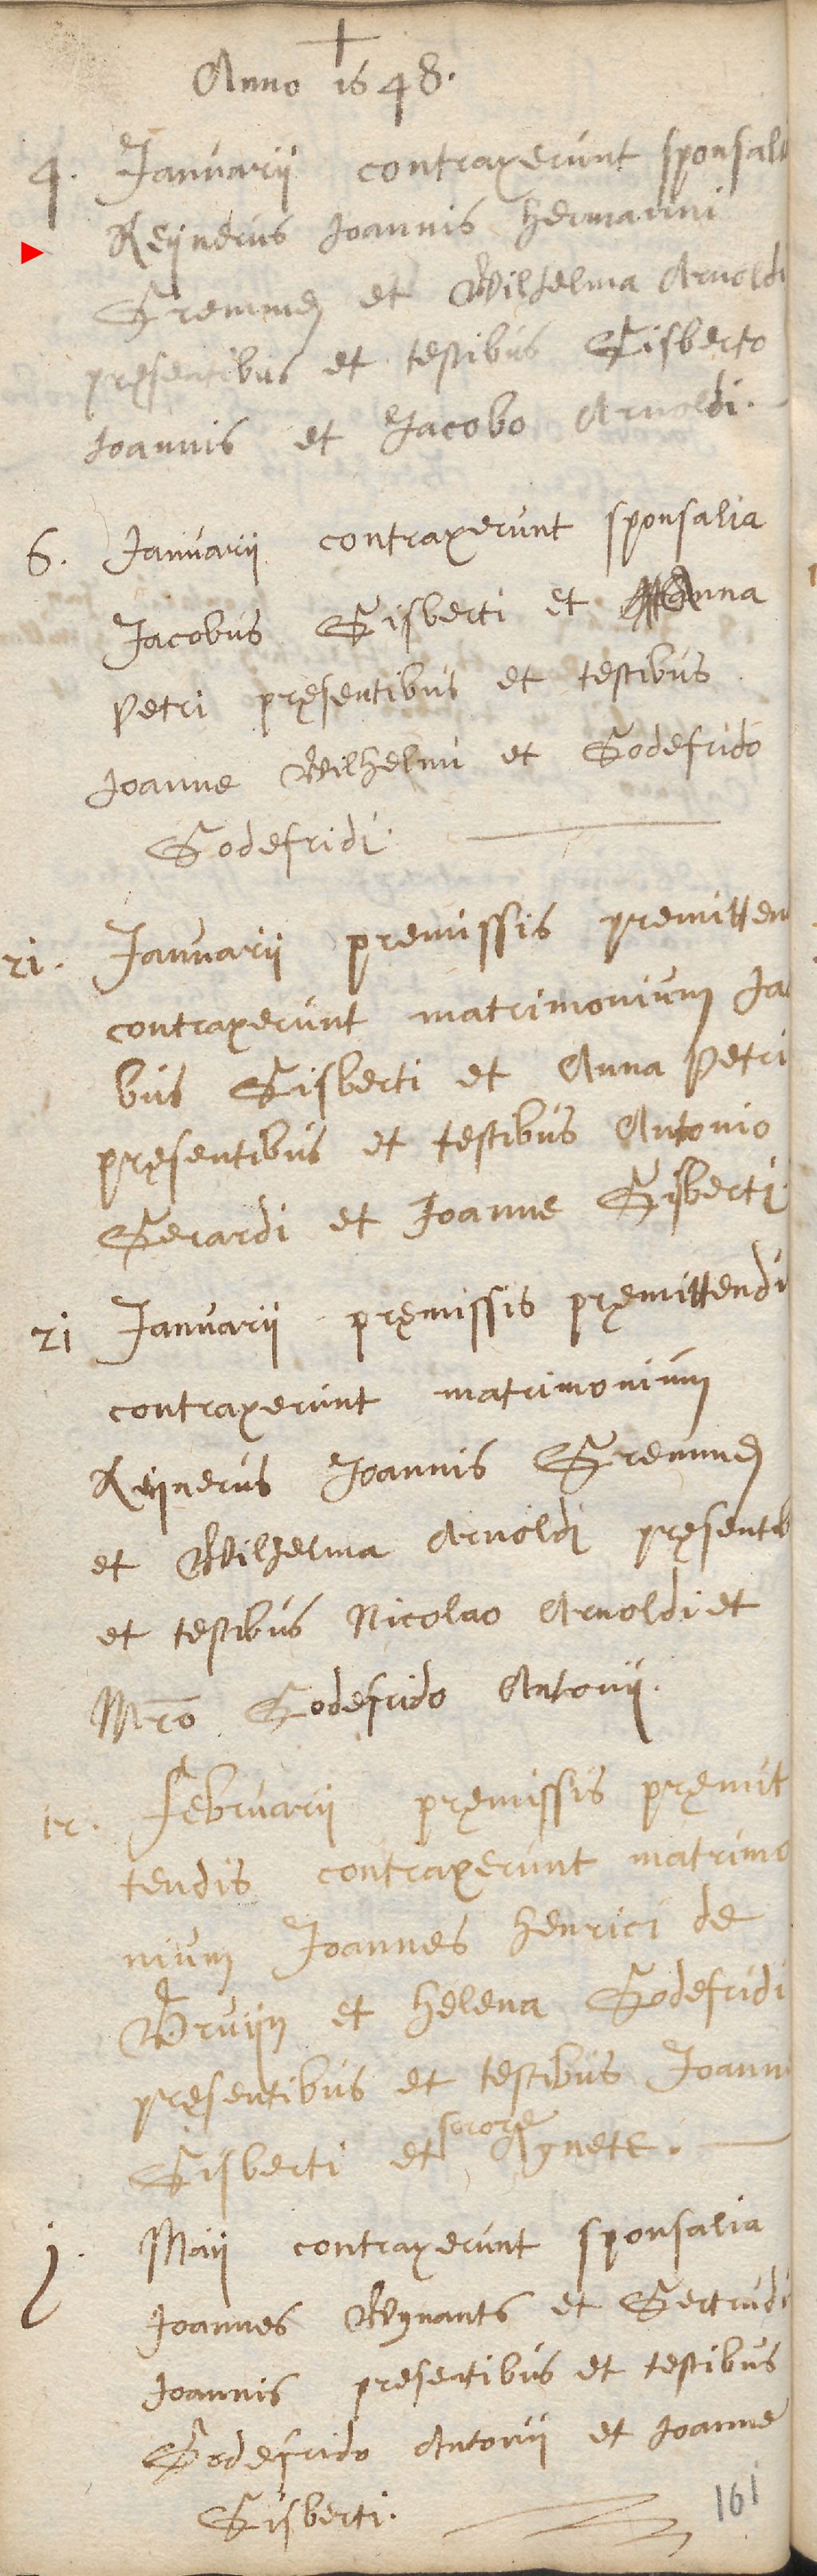 Anno 1648.
4. Januarii contraxerunt sponsali
Reijnerus Joannis Hermanni
Gremmen et Wilhelma Arnoldi
presentibus et testibus Gisberto
Joannis et Jacobo Arnoldi.
6. Januarii contraxerunt sponsalia
Jacobus Gisberti et Anna
Petri presentibus et testibus
Joanne Wilhelmi et Godefrido
Godefridi.
21. Januarii premissis premitten
contraxerunt matrimonium Ja
bus Gisberti et Anna Petri
presentibus et testibus Antonio
Gerardi et Joanne Gisberti
21 Januarii premissis premittendi
contraxerunt matrimonium
Reijnerus Joannis Gremmen
et Wilhelma Arnoldi presentib
et testibus Nicolao Arnoldi et
Mro Godefrido Antonij.
12. Februarii premissis premit
tendis contraxerunt matrimo
nium Joannes Henrici de
Bruijn et Helena Godefridi
presentibus et testibus Joanni
Gisberti et sorore Agnete.
j. Maij contraxerunt sponsalia
Joannes Wynants et Gertrudi
Joannis presentibus et testibus
Godefrido Antonii et Joanne
Gisberti.
161